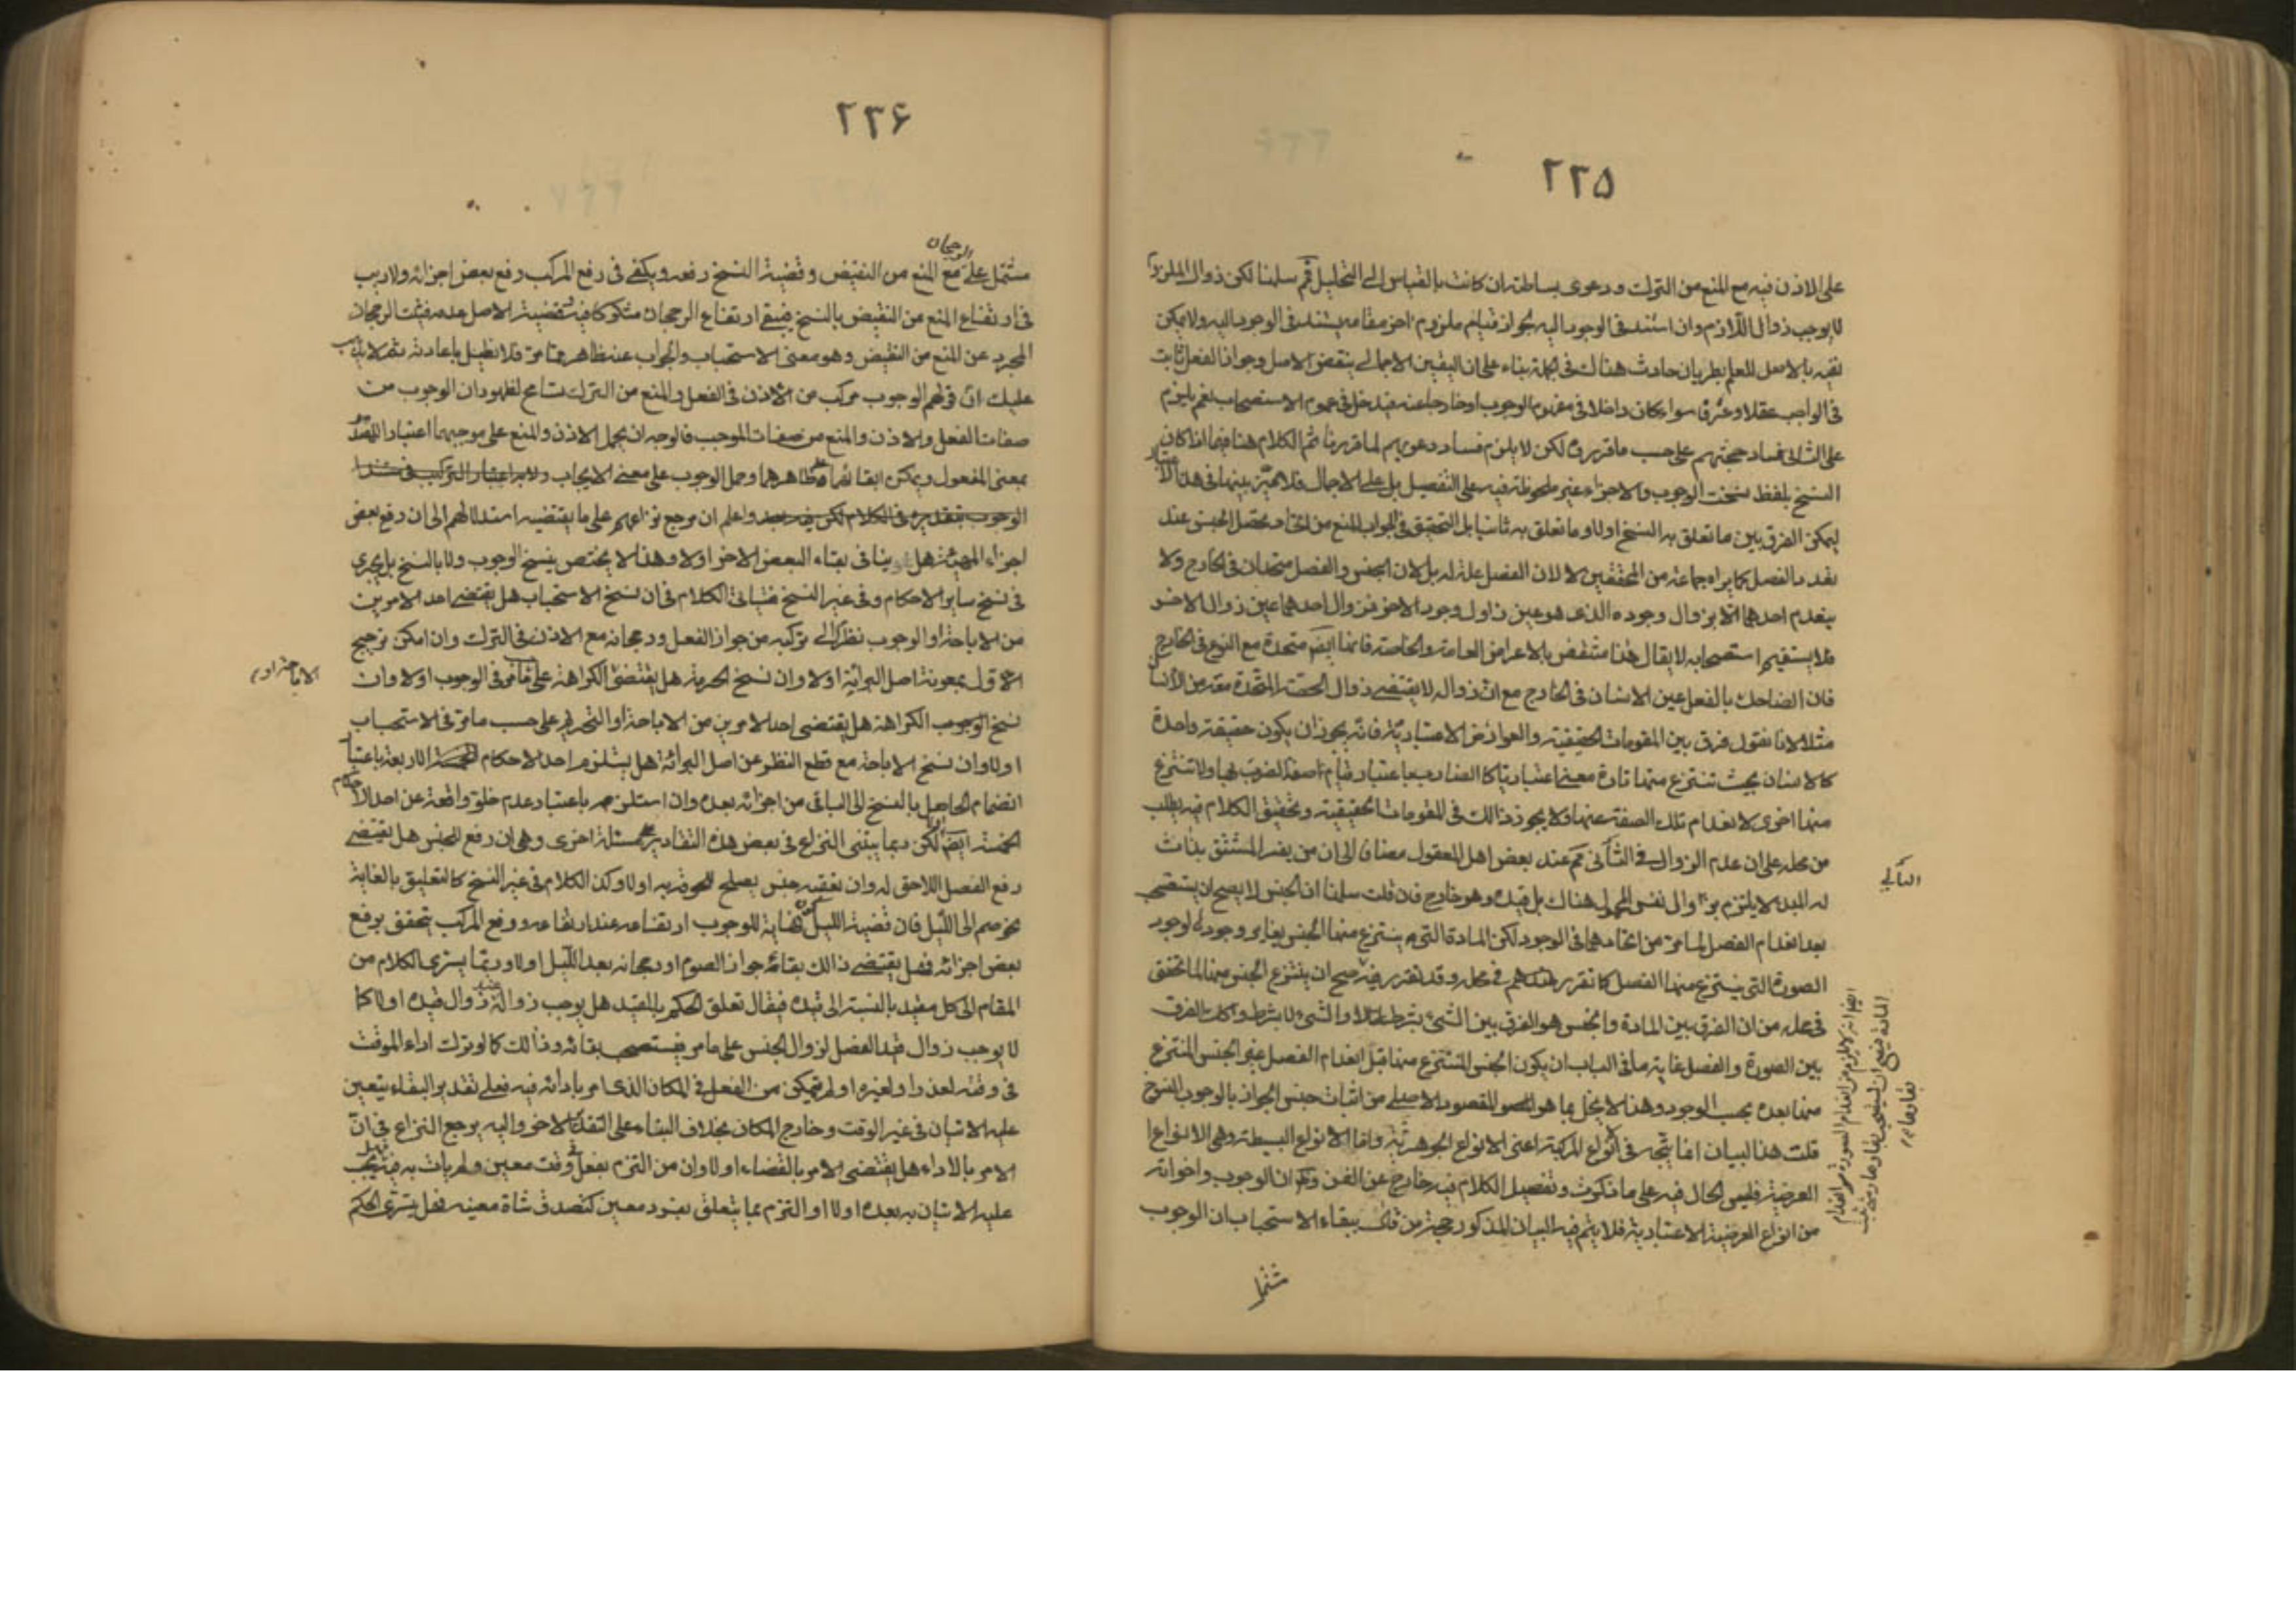 ٢٢٥
على الاذن فيه مع المنع من الترك ودعوى بساطته ان كانت بالقياس الى التحليل فم سلمنا لكن زوال الملزوم
لا يوجب زوال اللازم وان استند فى الوجود اليه لجواز قيام ملزوم اخر مقامه يستند فى الوجود اليه ولا يمكن
نفيه بالاصل للعلم بطريان حادث هناك فى الجملة بناء على ان اليقين الاجمالى ينقض الاصل وجواز الفعل ثابت
فى الواجب عقلا وعرفا سواء كان داخلا فى مفهوم الوجوب او خارجا عنه فيدخل فى عموم الاستصحاب نعم يلزم
على الثانى فساد حجتهم على حسب ما قرروه لكن لا يلزم فساد دعويهم لما قررنا ثم الكلام هنا فيما اذا كان
النسخ بلفظ نسخت الوجوب والاجزاء غير ملحوظة فيه على التفصيل بل على الاجمال فلا تميز بينهما فى هذا الاعتبار
ليمكن الفرق بين ما تعلق به النسخ اولا وما تعلق به ثانيا بل التحقيق فى الجواب المنع من بقاء محصل الجنس عند
انعدام الفصل كما يراه جماعة من المحققين لا لان الفصل علة له بل لان الجنس والفصل متحدان فى الخارج ولا
ينعدم احدهما الا بزوال وجوده الذى هو عين زوال وجود الاخر فزوال احدهما عين زوال الاخر
فلا يستقيم استصحابه لا يقال هذا منتقض بالاعراض العامة والخاصة فانها ايضا متحدة مع النوع فى الخارج
فان الضاحك بالفعل عين الانسان فى الخارج مع ان زواله لا يقتضى زوال الحصة المتحدة معه من الانسان
مثلا لانا نقول فرق بين المقومات الحقيقية والعوارض الاعتبارية فانه يجوز ان يكون حقيقة واحدة
كالانسان بحيث تنتزع منها تارة معنى اعتباريا كالضارب باعتبار قيام صفة الضرب بها ولا تنتزع
منها اخرى لانعدام تلك الصفة عنها ولا يجوز ذلك فى المقومات الحقيقية وتحقيق الكلام فيه يطلب
من محله على ان عدم الزوال فى الثانى مم عند بعض اهل المعقول مضافا الى ان من يفسر المشتق بذات
له المبدء لا يلتزم بزوال نفس المحمول هناك بل قيده وهو خارج فان قلت سلمنا ان الجنس لا يصح ان يستصحب
بعد انعدام الفصل لما مر من اتحادهما فى الوجود لكن المادة التى ينتزع منها الجنس يغاير وجودها لوجود
الصورة التى ينتزع منها الفصل كما تقرر عندهم فى محله وقد تقرر فيه صح ان ينتزع الجنس منها لما تحقق
فى محله من ان الفرق بين المادة والجنس هو الفرق بين الشئ بشرط لا والشئ لا بشرط وكذا الفرق
بين الصورة والفصل غاية ما فى الباب ان يكون الجنس المنتزع منها قبل انعدام الفصل غير الجنس المنتزع
منها بعده بحسب الوجود وهذا لا يخل بما هو المقصود الاصلى من اثبات جنس الجواز بالوجوب المنسوخ
قلت هذا البيان انما يتجه فى الانواع المركبة اعنى الانواع الجوهرية واما الانواع البسيطة وهى الانواع
العرضية فليس الحال فيه على ما ذكرت وتفصيل الكلام فيه خارج عن الفن وظ ان الوجوب واخواته
من انواع العرضية الاعتبارية فلا يتم فيه البيان المذكور حجة من قال ببقاء الاستحباب ان الوجوب
مشتمل
٢٢۶
الرجحان
مشتمل على مع المنع من النقيض وقضية النسخ رفعه ويكفى فى رفع المركب رفع بعض اجزائه ولا ريب
فى ارتفاع المنع من النقيض بالنسخ فيبقى ارتفاع الرجحان مشكوكا فيه فقضية الاصل عدمه فيثبت الرجحان
المجرد عن المنع من النقيض وهو معنى الاستحباب والجواب عنه ظاهر مما مر فلا نطيل باعادته ثم لا يذهب
عليك ان قولهم الوجوب مركب من الاذن فى الفعل والمنع من الترك تسامح لظهور ان الوجوب من
صفات الفعل والاذن والمنع من صفات الموجب فالوجه ان يحمل الاذن والمنع على موجبهما اعتبار المصدر
بمعنى المفعول ويمكن ابقائهما على ظاهرهما وحمل الوجوب على معنى الايجاب
واعلم ان مرجع نزاعهم على ما يقتضيه استدلالهم الى ان رفع بعض
اجزاء المهية هل ينافى بقاء البعض الاخر اولا وهذا لا يختص بنسخ الوجوب ولا بالنسخ بل يجرى
فى نسخ ساير الاحكام وفى غير النسخ فيتاتى الكلام فى ان نسخ الاستحباب هل يقتضى احد الامرين
من الاباحة او الوجوب نظرا الى تركبه من جواز الفعل ورجحانه مع الاذن فى الترك وان امكن ترجيح
الاول بمعونة اصل البرائة اولا وان نسخ الحرمة هل يقتضى الكراهة على قياس ما مر فى الوجوب اولا وان
الاباحة او
نسخ الكراهة هل يقتضى احد الامرين من الاباحة او التحريم على حسب ما مر فى الاستحباب
اولا وان نسخ الاباحة مع قطع النظر عن اصل البرائة هل يستلزم احد الاحكام الاربعة باعتبار
انضمام الحاصل بالنسخ الى الباقى من اجزائه بعده وان استلزمه باعتبار عدم خلو واقعة عن احد الاحكام
الخمسة ايضا لكن ربما يبتنى النزاع فى بعض هذه التقادير على مسئلة اخرى وهى ان رفع الجنس هل يقتضى
رفع الفصل اللاحق له وان تعقبه جنس يصلح للحوقه به اولا وكذا الكلام فى غير النسخ كالتعليق بالغاية
نحو صم الى الليل فان قضية كون الليل غاية للوجوب ارتفاعه عند ارتفاعه ورفع المركب يتحقق برفع
بعض اجزائه فهل يقتضى ذلك بقاء جواز الصوم او رجحانه بعد الليل اولا وربما يسرى الكلام من
المقام الى كل مقيد بالنسبة الى قيده فيقال تعلق الحكم بالمقيد هل يوجب زواله عند زوال قيده اولا كما
لا يوجب زوال الفصل لزوال الجنس على ما مر فيستصحب بقائه وذلك كما لو ترك اداء الموقت
فى وقته لعذر او لغيره او لم يتمكن من الفعل فى المكان الذى امر بادائه فيه فعلى تقدير البقاء يتعين
عليه الاتيان فى غير الوقت وخارج المكان بخلاف البناء على التقدير الاخر واليه يرجع النزاع فى ان
الامر بالاداء هل يقتضى الامر بالقضاء اولا وان من التزم بفعل فى وقت معين ولم يات به فيه فهل يجب
عليه الاتيان به بعده اولا او التزم بما يتعلق بقيود معين كتصدق شاة معينه فهل يسرى الحكم